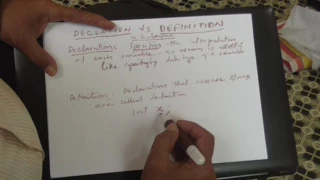 DECLARATION VS DEFINITION
IN C LANGUAGE
Declaration: Specifies the interpretation
of each variable no memory is
like specifying data type of a variable
Definition: Declarations that reserve
are called definition
int x;